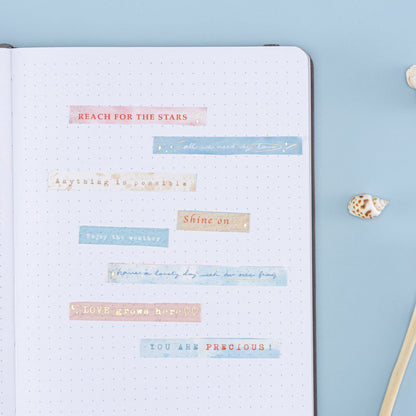 REACH FOR THE STARS
all we need is love
Anything is possible
Shine on
Enjoy the weather
lovely day
LOVE grows here
YOU ARE PRECIOUS!